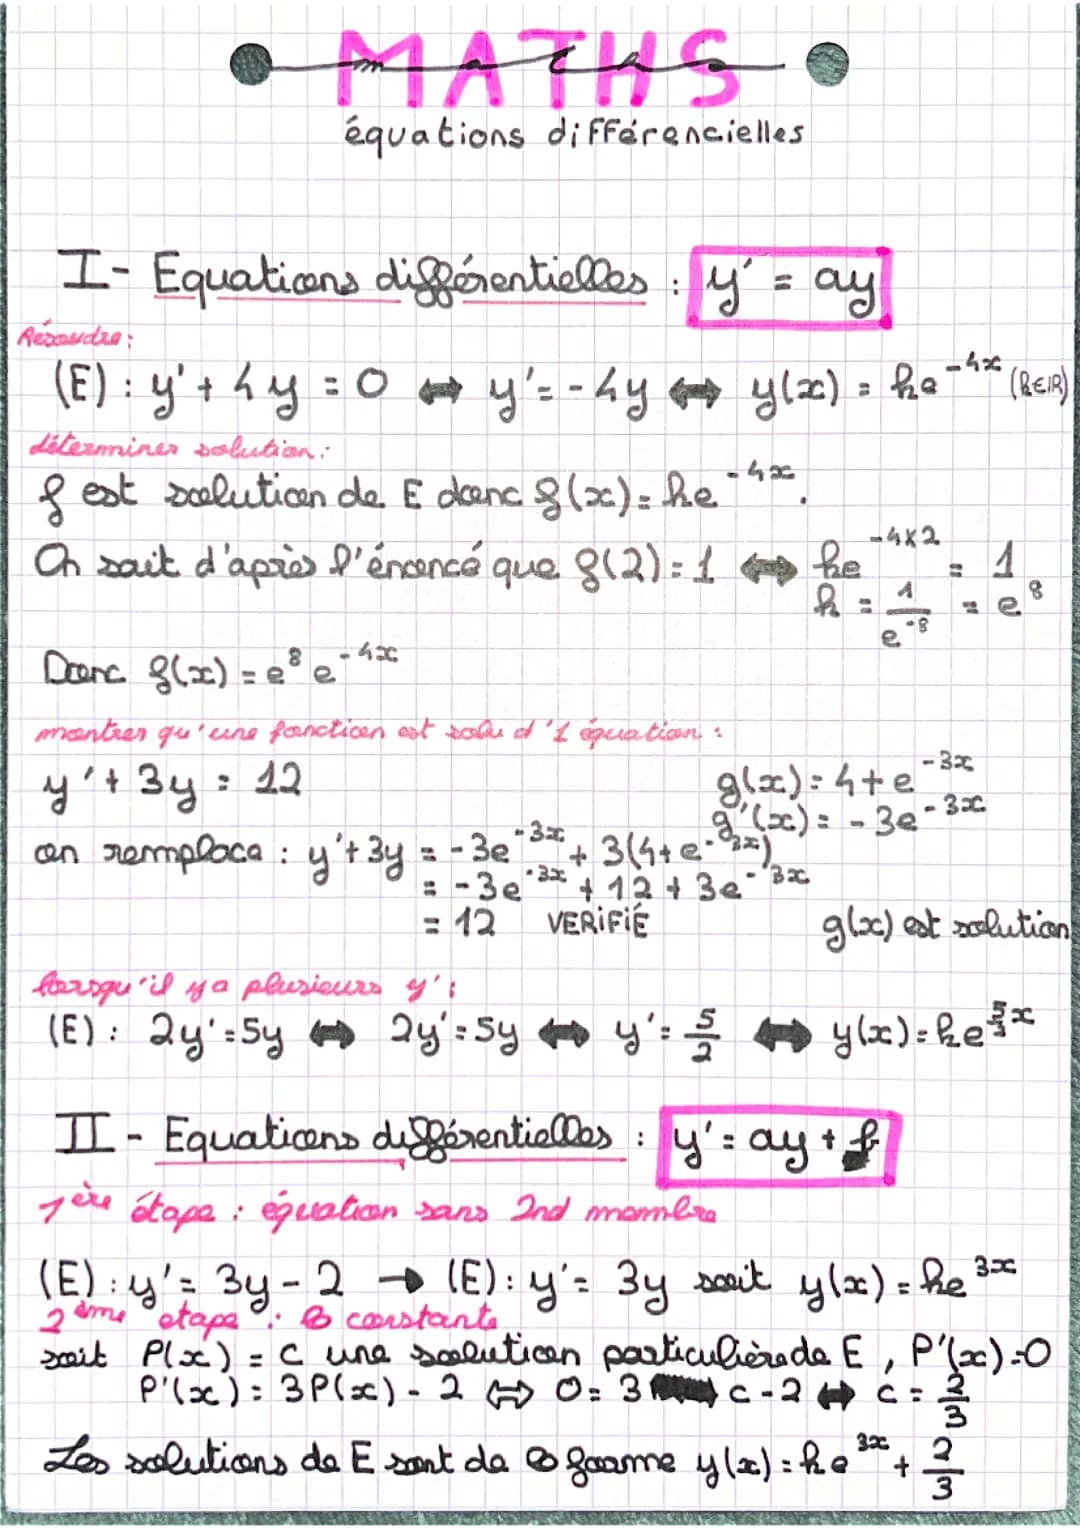 MATHS
maths
équations différencielles
I- Equations différentielles : y' = ay
Résoudre :
(E) : y' + 4y = 0 ⟺ y' = -4y ⟺ y(x) = ke^{-4x} (k∈IR)
déterminer solution :
f est solution de E donc f(x) = ke^{-4x}.
On sait d'après l'énoncé que f(2) = 1 ⟺ ke^{-4×2} = 1
k = 1/e^{-8} = e^8
Donc f(x) = e^8 e^{-4x}
montrer qu'une fonction est solu d'1 équation :
y' + 3y = 12 g(x) = 4 + e^{-3x}
g'(x) = -3e^{-3x}
on remplace : y' + 3y = -3e^{-3x} + 3(4 + e^{-3x})
= -3e^{-3x} + 12 + 3e^{-3x}
= 12 VERIFIÉ g(x) est solution
lorsqu'il y a plusieurs y' :
(E) : 2y' = 5y ⟺ 2y' = 5y ⟺ y' = 5/2 ⟺ y(x) = ke^{5/2 x}
II - Equations différentielles : y' = ay + b
1ère étape : équation sans 2nd membre
(E) : y' = 3y - 2 → (E) : y' = 3y soit y(x) = ke^{3x}
2ème etape : constante
soit P(x) = c une solution particulière de E, P'(x) = 0
P'(x) = 3P(x) - 2 ⟺ 0 = 3 c - 2 ⟺ c = 2/3
Les solutions de E sont de forme y(x) = ke^{3x} + 2/3